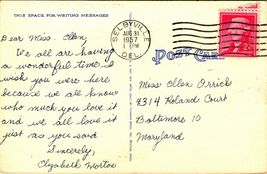 THIS SPACE FOR WRITING MESSAGES
Dear Miss. Ellen,
We all are having
a wonderful time. I
wish you were here
because we all know
who much you love it
and we all love it
just as you said
Sincerely,
Elizabeth Morton
SELBYVILLE
AUG 31
1 PM
1957
DEL.
Post Card
Miss Ellen Orrick
4314 Roland Court
Baltimore 10
Maryland